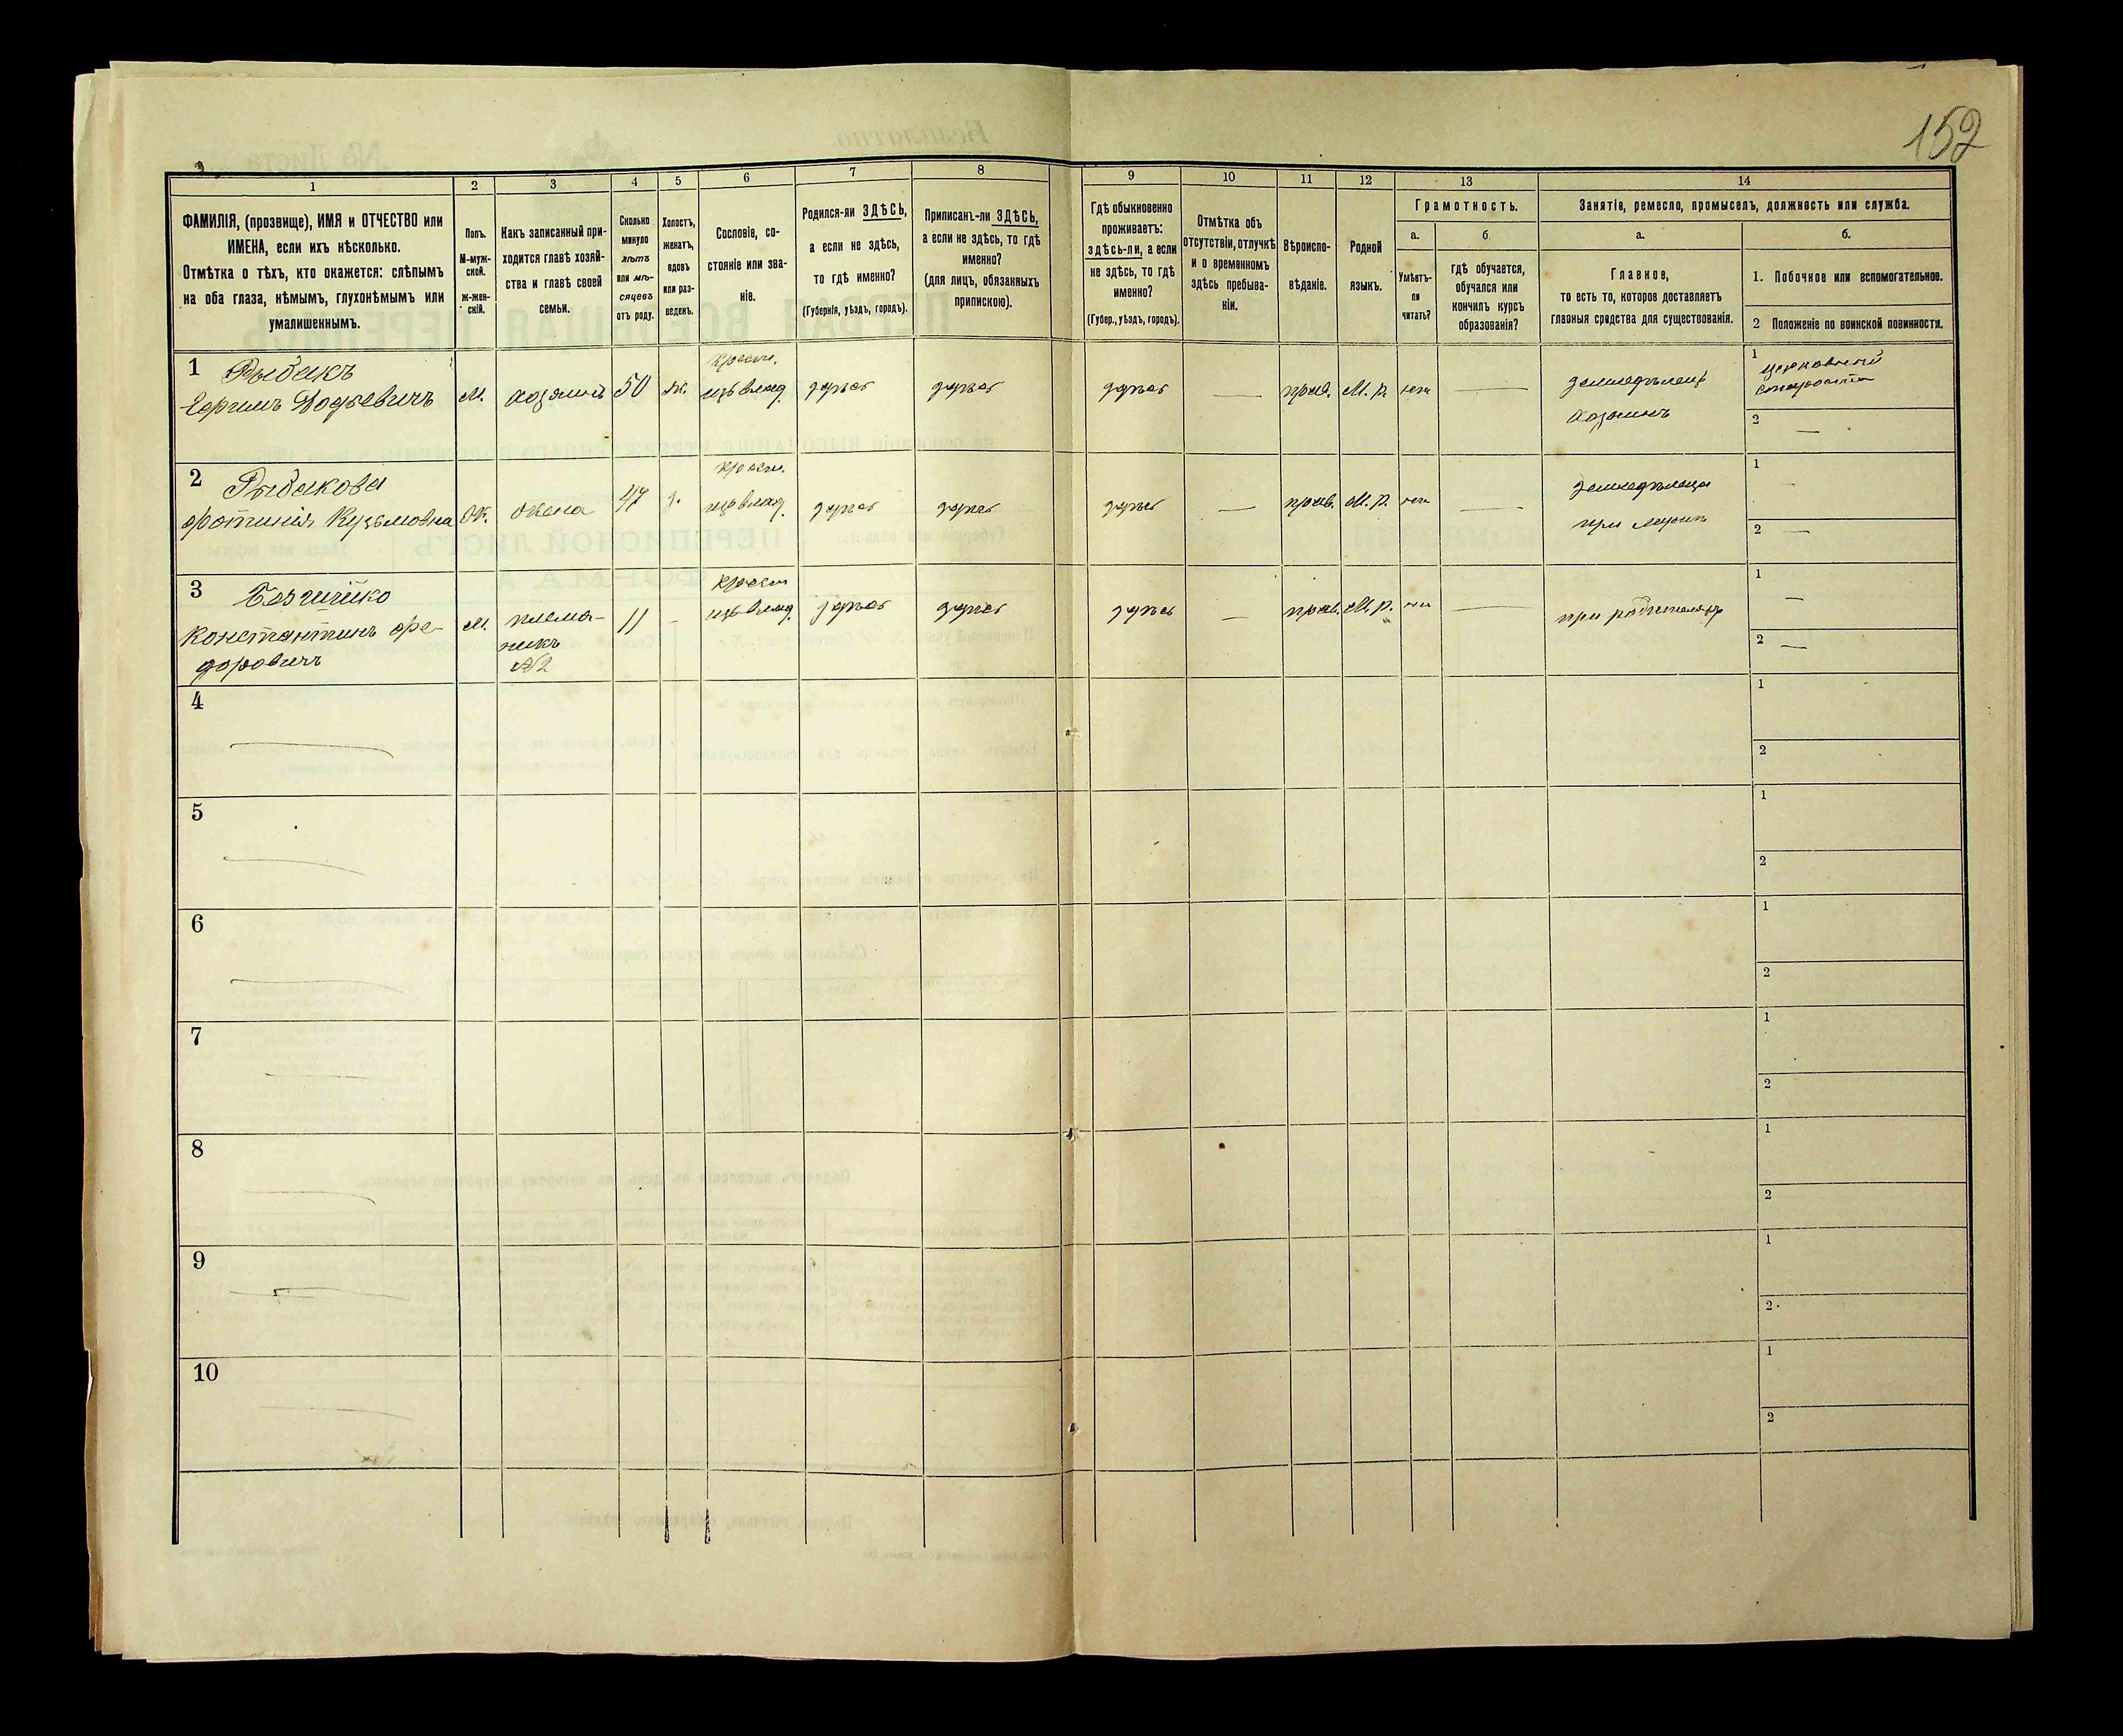 152
1
2
3
4
5
6
7
8
9
10
11
12
13
14
ФАМИЛІЯ, (прозвище), ИМЯ и ОТЧЕСТВО или
ИМЕНА, если ихъ нѣсколько.
Отмѣтка о тѣхъ, кто окажется: слѣпымъ
на оба глаза, нѣмымъ, глухонѣмымъ или
умалишеннымъ.
Полъ.
М-муж-
ской.
ж-жен-
скій.
Какъ записанный при-
ходится главѣ хозяй-
ства и главѣ своей
семьи.
Сколько
минуло
лѣтъ
или мѣ-
сяцевъ
отъ роду.
Холостъ,
женатъ,
вдовъ
или раз-
веденъ.
Сословіе, со-
стояніе или зва-
ніе.
Родился-ли ЗДѢСЬ,
а если не здѣсь,
то гдѣ именно?
(Губернія, уѣздъ, городъ).
Приписанъ-ли ЗДѢСЬ,
а если не здѣсь, то гдѣ
именно?
(для лицъ, обязанныхъ
припискою).
Гдѣ обыкновенно
проживаетъ:
здѣсь-ли, а если
не здѣсь, то гдѣ
именно?
(Губер., уѣздъ, городъ).
Отмѣтка объ
отсутствіи, отлучкѣ
и о временномъ
здѣсь пребыва-
ніи.
Вѣроиспо-
вѣданіе.
Родной
языкъ.
Грамотность.
а.
б.
Умѣетъ-
ли
читать?
гдѣ обучается,
обучался или
кончилъ курсъ
образованія?
Занятіе, ремесло, промыселъ, должность или служба.
а.
б.
Главное,
то есть то, которое доставляетъ
главныя средства для существованія.
1. Побочное или вспомогательное.
2 Положеніе по воинской повинности.
1 Рыбакъ
М. хозяинъ 50 ж. крест. изъ влад. здѣсь здѣсь здѣсь — прав. М. р. нетъ — земледѣлецъ хозяинъ
1 церковный
староста
2 —
2 Рыбакова
фотинія Кузьмовна Ж. жена 47 з. крест. изъ влад. здѣсь здѣсь здѣсь — прав. М. р. нетъ — земледѣлица
при мужѣ
1 -
2 —
3
Константинъ фе-
доровичъ
М. племя-
никъ
№2
11 - крест. изъ влад. здѣсь здѣсь здѣсь — прав. М. р. нетъ — при родителяхъ
1 —
2 —
4
1
2
5
1
2
6
1
2
7
1
2
8
1
2
9
1
2
10
1
2